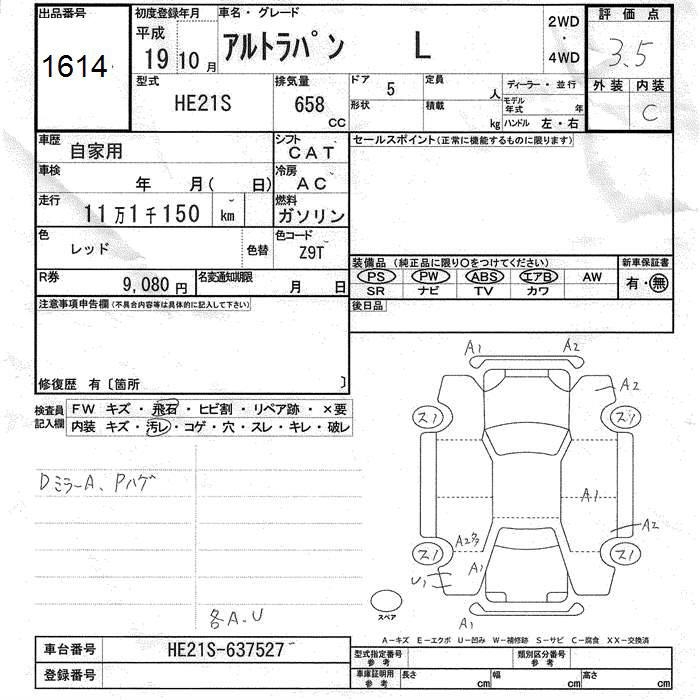 出品番号 初度登録年月 車名・グレード 2WD・4WD 評価点
1614 平成 19 10月 アルトラパン L 3.5
型式 HE21S 排気量 658 CC ドア 5 定員 人 ディーラー・並行 外装 内装
形状 積載 kg モデル年式 年 ハンドル 左・右 C
車歴 自家用 シフト CAT セールスポイント(正常に機能するものに限ります)
車検 年 月( 日) 冷房 AC
走行 11万1千150 km 燃料 ガソリン
色 レッド 色替 色コード Z9T
装備品(純正品に限り〇をつけてください) 新車保証書
R券 9,080円 名変通知期限 月 日 PS PW ABS エアB AW 有・無
SR ナビ TV カワ
注意事項申告欄(不具合内容等は具体的に記入して下さい) 後日品
修復歴 有〔箇所 〕
検査員記入欄 FW キズ・飛石・ヒビ割・リペア跡・×要
内装 キズ・汚レ・コゲ・穴・スレ・キレ・破レ
A1 A2
A2
ス1 ス1
DミラーA、Pハゲ
A1
A2
A2多
ス1 ス1
A1
U1
各A.U
スペア
A1
A-キズ E-エクボ U-凹み W-補修跡 S-サビ C-腐食 XX-交換済
車台番号 HE21S-637527 型式指定番号 参考 類別区分番号 参考
登録番号 車庫証明用 参考 長さ cm 幅 cm 高さ cm